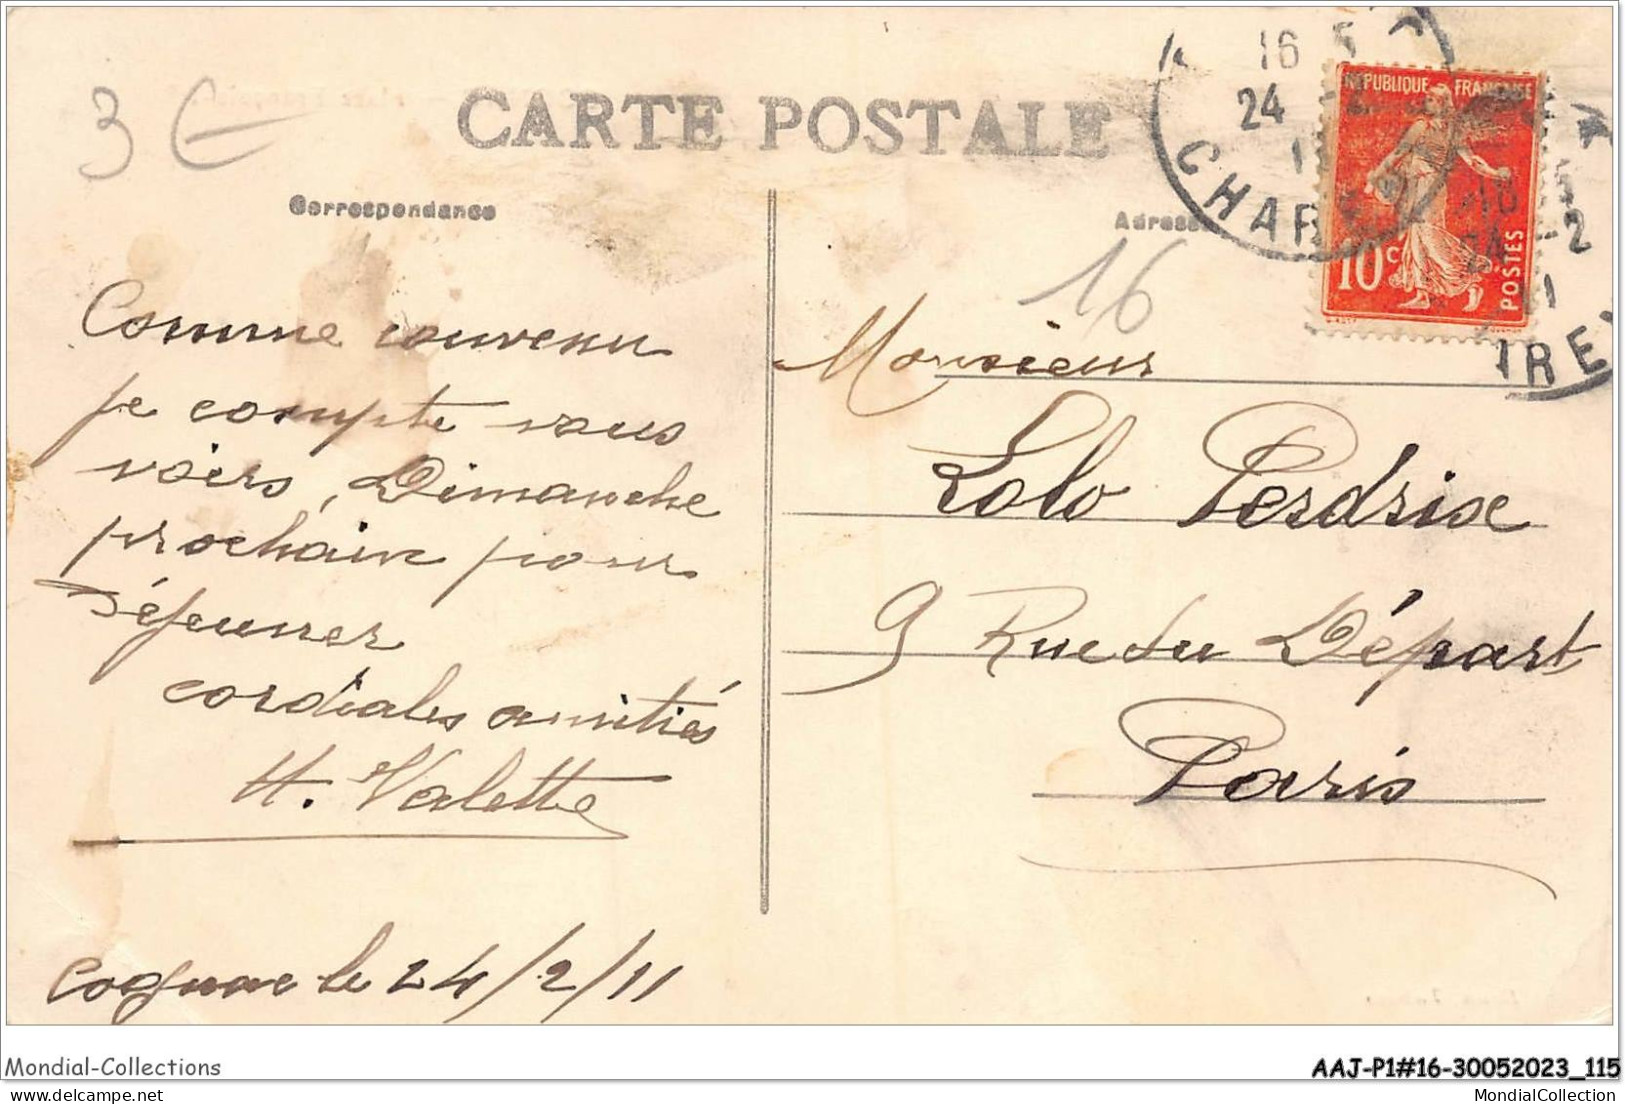 3 €
CARTE POSTALE
Correspondance
Adresse
16
16
24
CHARENTE
REPUBLIQUE FRANÇAISE
10 c
POSTES
24 -2
11
Comme convenu
je compte vous
voirs, Dimanche
prochain pour
déjeuner
cordiales amitiés
H. Valette
Cognac le 24/2/11
Monsieur
Lolo Perdrix
9 Rue du Départ
Paris
Mondial-Collections
AAJ-P1#16-30052023_115
MondialCollection